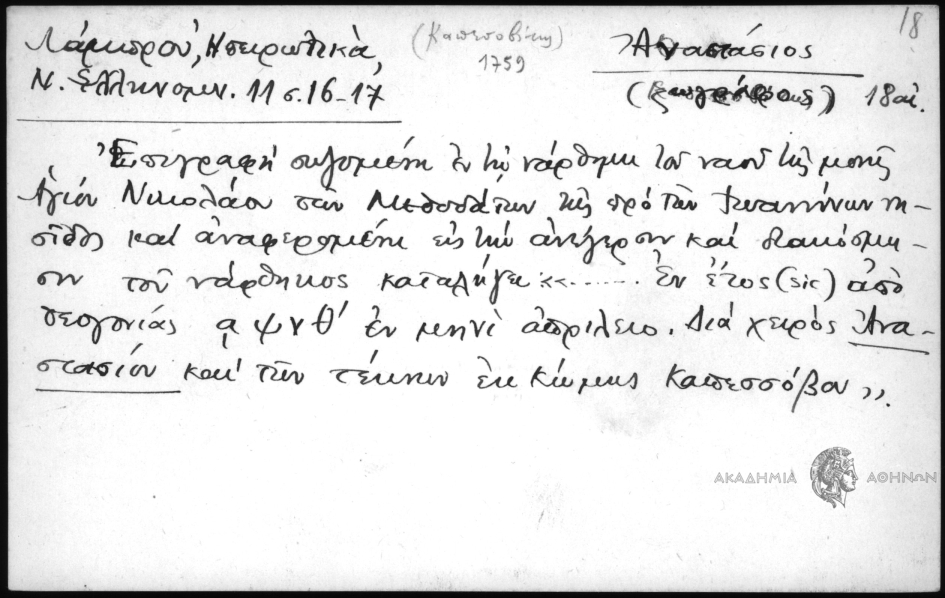 18
Λάμπρου, Ηπειρωτικά, (Καπεσοβίτης) Ἀναστάσιος
Ν. Ἑλληνομν. 11 σ. 16-17 1759 18 αἰ.
Ἐπιγραφή σωζομένη ἐν τῷ νάρθηκι τοῦ ναοῦ τῆς μονῆς
Ἁγίου Νικολάου τῶν Μεθοδάτων τῆς πρό τῶν Ἰωαννίνων νη-
σίδος καί ἀναφερομένη εἰς τήν ἀνέγερσιν καί διακόσμη-
σιν τοῦ νάρθηκος καταλήγει «....... Ἐν ἔτος (sic) ἀπὸ
θεογονίας αψνθ' ἐν μηνὶ ἀπριλείο. Διά χειρός Ἀνα-
στασίου καί τῶν τέκνων ἐκ κώμης Καπεσσόβου».
ΑΚΑΔΗΜΙΑ ΑΘΗΝΩΝ